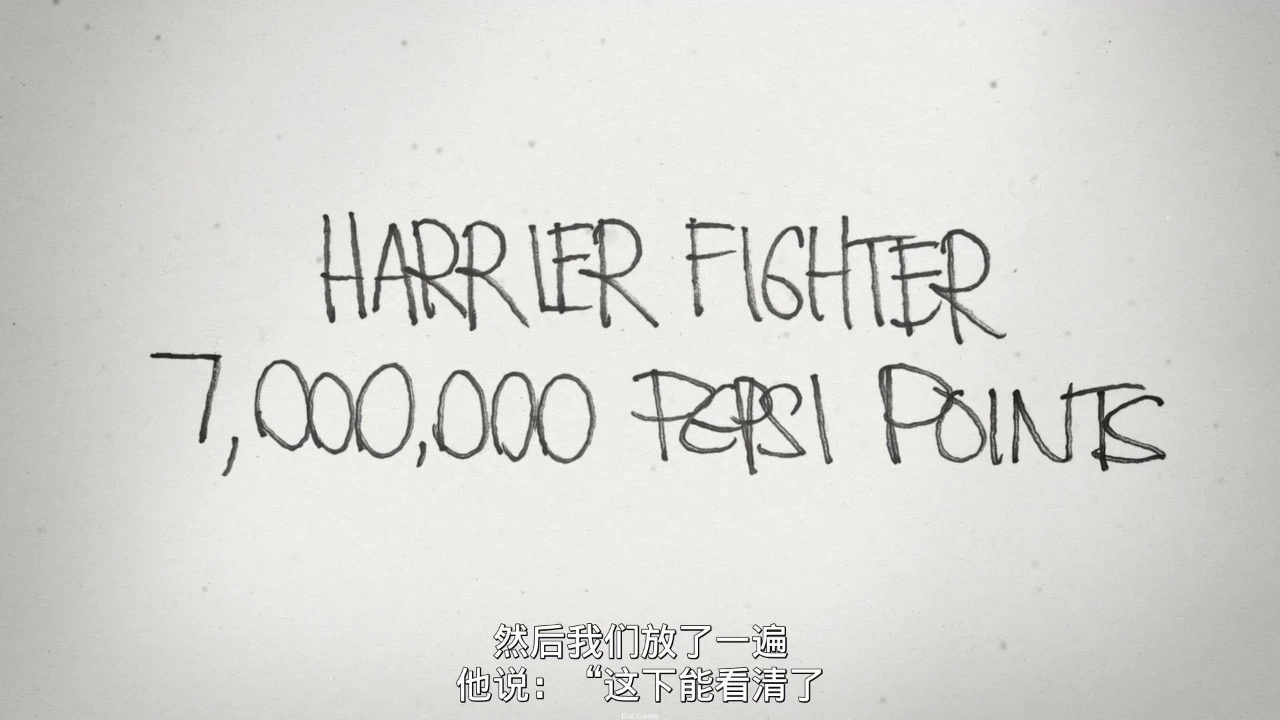 HARRIER FIGHTER
7,000,000 PEPSI POINTS
然后我们放了一遍
他说：“这下能看清了
End Credits